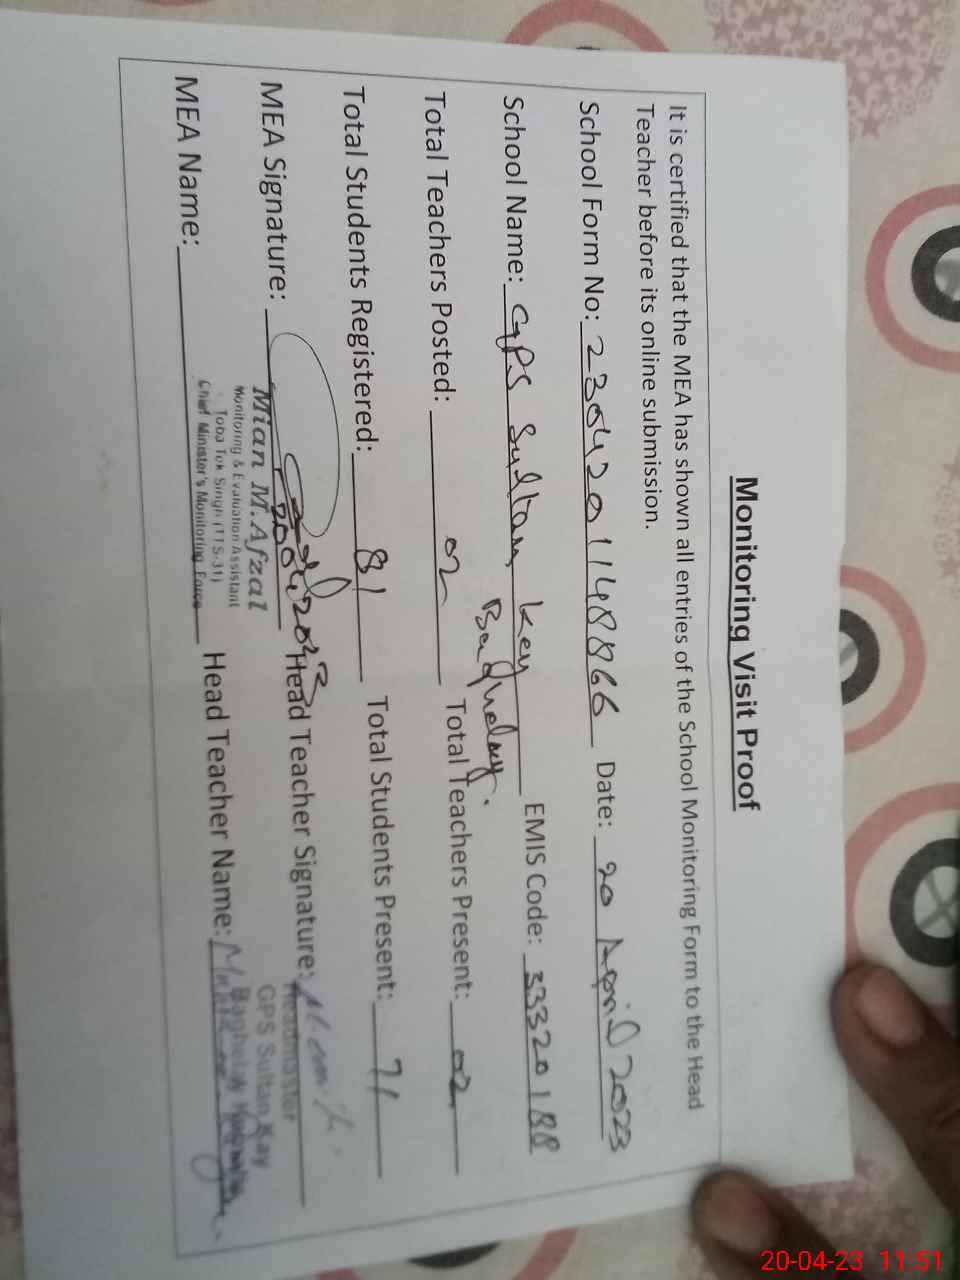 Monitoring Visit Proof
It is certified that the MEA has shown all entries of the School Monitoring Form to the Head
Teacher before its online submission.
School Form No: 2304201148866 Date: 20 April 2023
School Name: GPS Sultan key EMIS Code: 33320188
Total Teachers Posted: 02 Total Teachers Present: 02
Total Students Registered: 81 Total Students Present: 71
MEA Signature: Head Teacher Signature:
Mian M. Afzal
Monitoring & Evaluation Assistant
Toba Tek Singh (TTS-31)
Chief Minister's Monitoring Force
Headmaster
GPS Sultan Kay
MEA Name: Head Teacher Name:
20-04-23 11:51